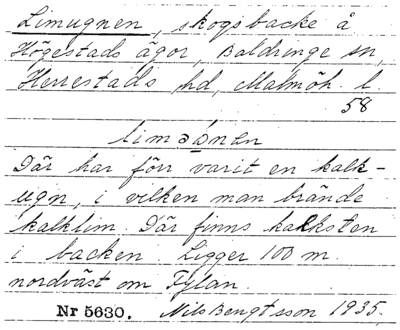 Limugnen, skogsbacke å
Högestads ägor, Baldringe sn,
Herrestads hd, Malmöh. l.
58
Där har förr varit en kalk-
ugn, i vilken man brände
kalklim. Där finns kalksten
i backen. Ligger 100 m.
nordväst om Fylan.
Nr 5630. Nils Bengtsson 1935.